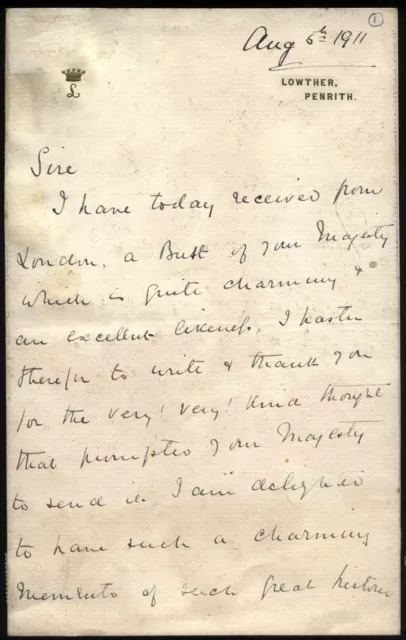 1
Aug 6th 1911
L
LOWTHER,
PENRITH.
Sire
I have today received from
London, a Bust of your Majesty
which is quite charming &
an excellent likeness, I hasten
therefor to write & thank you
for the very! very! kind thought
that prompted your Majesty
to send it. I am delighted
to have such a charming
Memento of such great historic